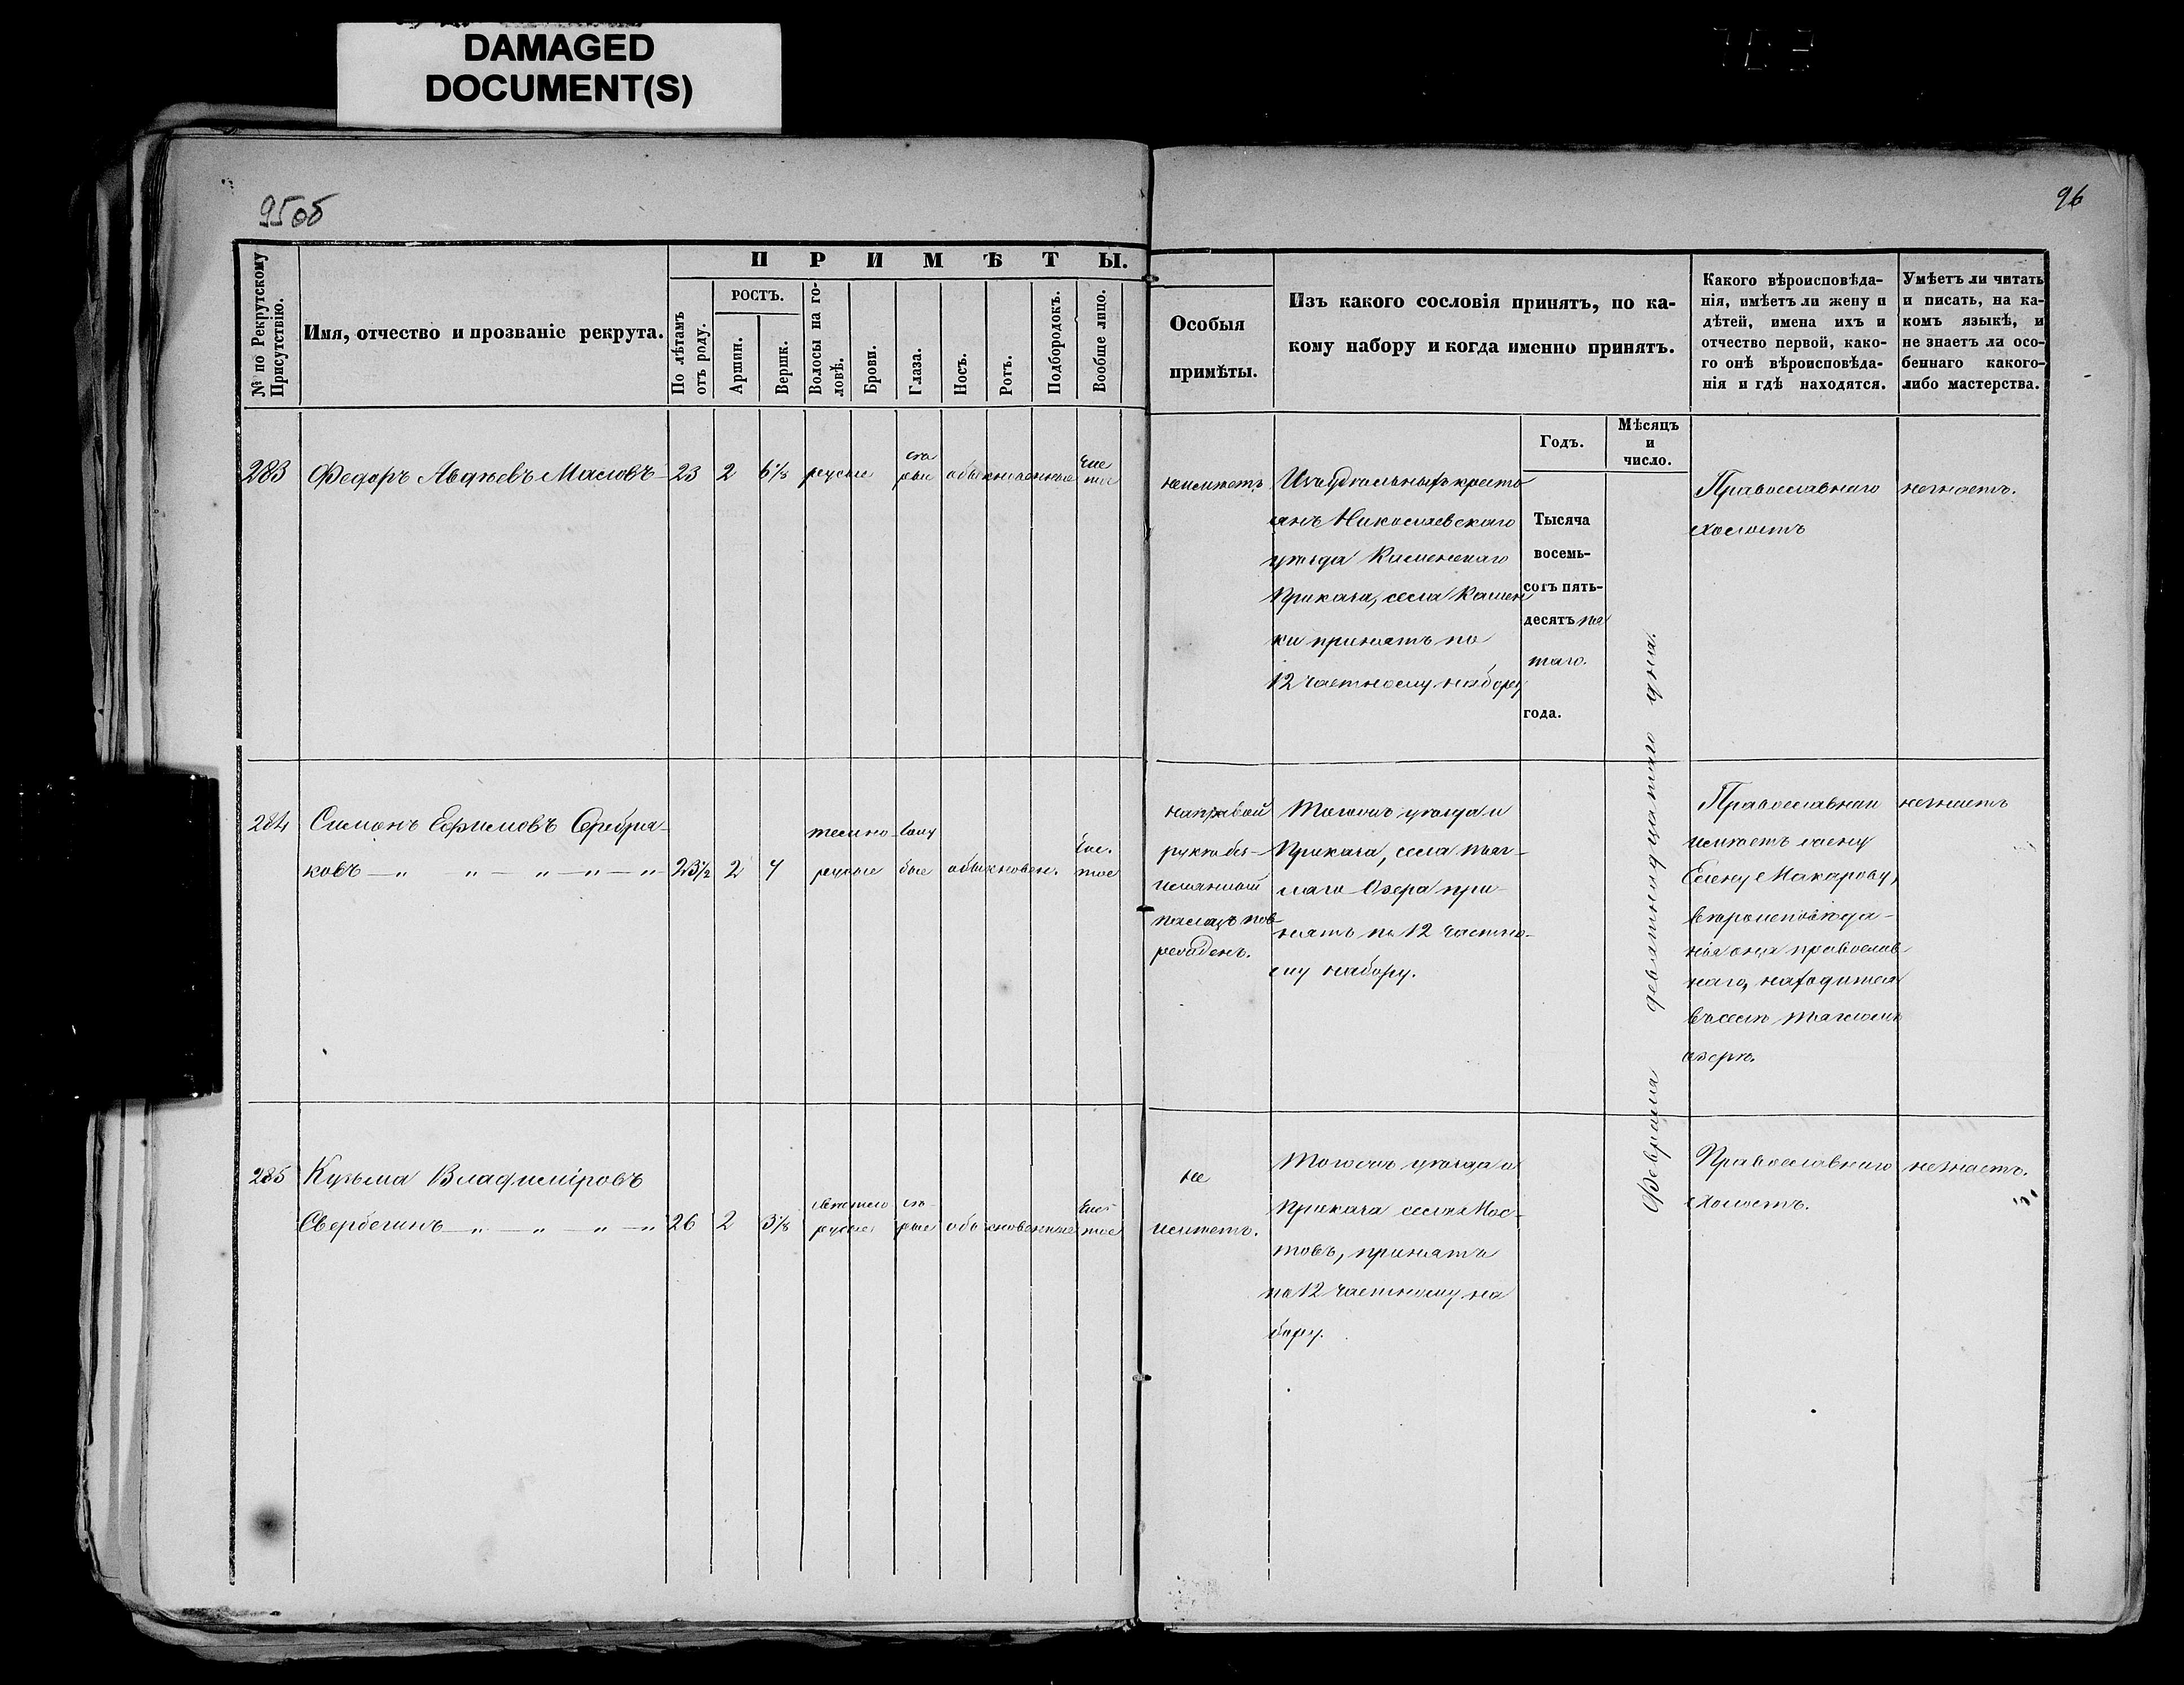 DAMAGED
DOCUMENT(S)
95об
96
П Р И М Ѣ Т Ы.
№ по Рекрутскому
Присутствію.
Имя, отчество и прозваніе рекрута.
По лѣтамъ
отъ роду.
РОСТЪ.
Аршин.
Вершк.
Волосы на го-
ловѣ.
Брови.
Глаза.
Носъ.
Ротъ.
Подбородокъ.
Вообще лицо.
Особыя
примѣты.
Изъ какого сословія принятъ, по ка-
кому набору и когда именно принятъ.
Какого вѣроисповѣда-
нія, имѣетъ ли жену и
дѣтей, имена ихъ и
отчество первой, како-
го онѣ вѣроисповѣда-
нія и гдѣ находятся.
Умѣетъ ли читать
и писать, на ка-
комъ языкѣ, и
не знаетъ ли осо-
беннаго какого-
либо мастерства.
Годъ.
Мѣсяцъ
и
число.
283 Федоръ Авдѣевъ Масловъ 23 2 6 1/8 русые
сѣ
рые
обыкновенные
чис
тое
неимѣетъ
Изъ Удѣльныхъ кресть
янъ Николаевскаго
уѣзда Каменскаго
Приказа, села Камен
ки принятъ по
12 частному набору
Тысяча
восемь-
сотъ пять-
десятъ пя
таго.
года.
Февраля девятнадцатаго дня.
Православнаго
холостъ
незнаетъ.
284 Симонъ Ефимовъ Серебря-
ковъ — „ „ — „ — „ — „ 23 1/2 2 4
темно-
русые
голу
бые
обыкновен.
чис.
тое
на правой
рукѣ без-
имянный
палецъ пов-
режденъ.
Тогожъ уѣзда и
Приказа, села Тяг-
лаго Озера при-
нятъ по 12 частно-
му набору.
Православнаго
имѣетъ жену
Елену Макарову,
вѣроисповѣда-
нія она православ
наго, находится
въ селѣ Тягломъ
озерѣ.
незнаетъ
285 Кузьма Владиміровъ
Свербегинъ — „ — „ „ — „ 26 2 3 1/8
свѣтло
русые
сѣ-
рые
обыкновенные
чис-
тое
не
имѣетъ.
Тогожъ уѣзда и
Приказа села Мос-
товъ, принятъ
по 12 частному на
бору.
Православнаго
холостъ.
незнаетъ.